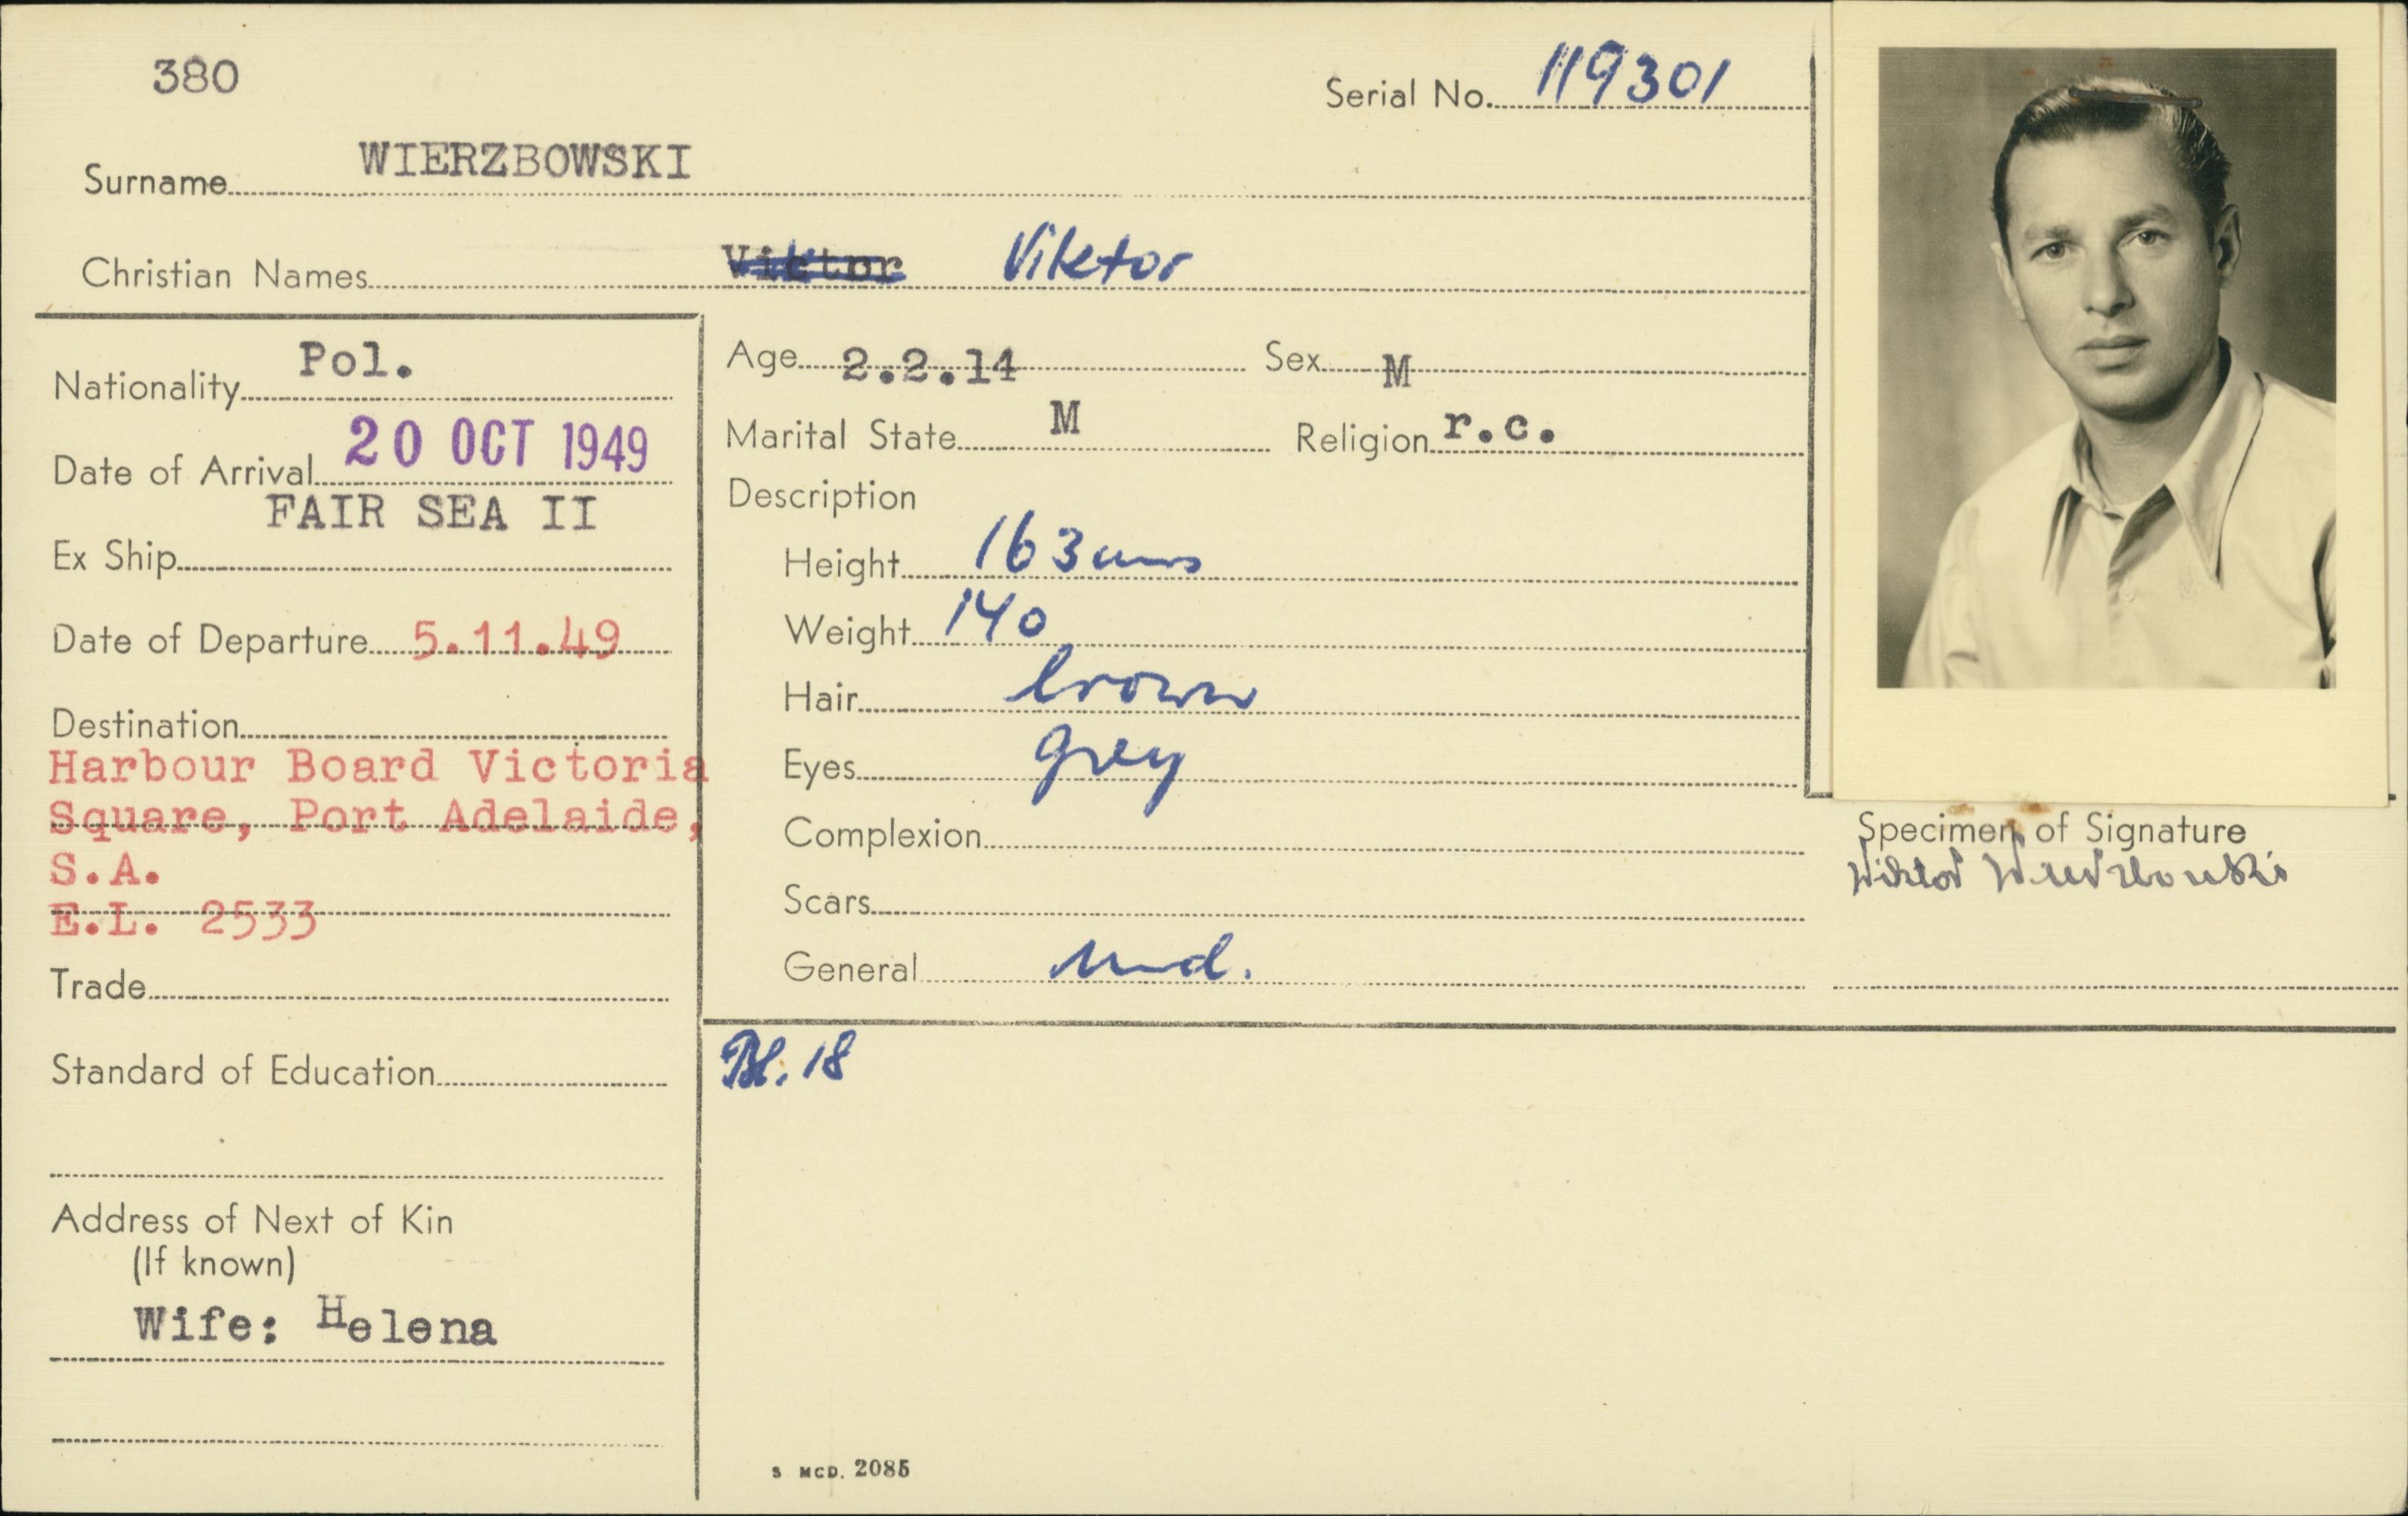 380
Serial No. 119301
Surname WIERZBOWSKI
Christian Names Victor Viktor
Nationality Pol.
Date of Arrival 20 OCT 1949
FAIR SEA II
Ex Ship
Date of Departure 5.11.49
Destination
Harbour Board Victoria
Square, Port Adelaide,
S.A.
E.L. 2533
Trade
Standard of Education
Address of Next of Kin
(If known)
Wife: Helena
Age 2.2.14 Sex M
Marital State M Religion r.c.
Description
Height 163 cms
Weight 140
Hair brown
Eyes grey
Complexion
Scars
General med.
Bl. 18
Specimen of Signature
Wiktor Wierzbowski
S MCD. 2085